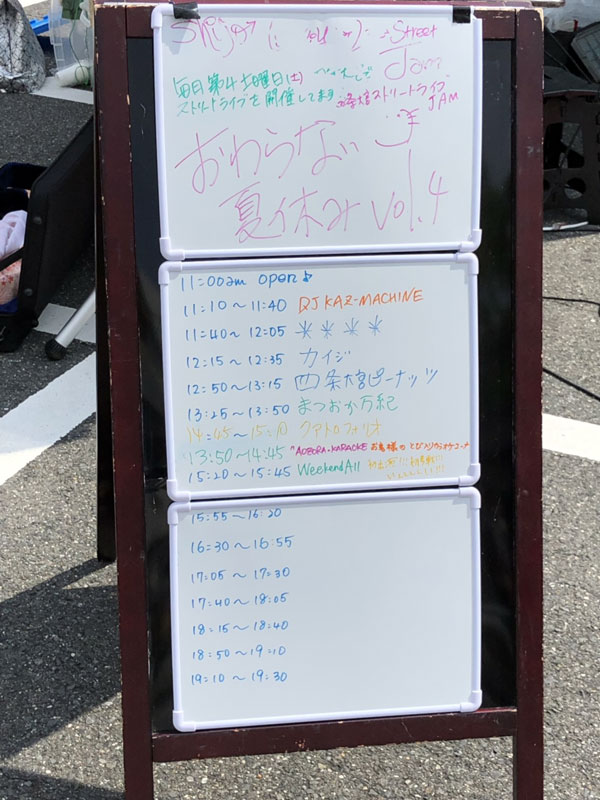 Street
Jam
毎日第4土曜日(土)
ストリートライブを開催してます
四条大宮ストリートライブ
JAM
おわらない
夏休み vol.4
11:00am open♪
11:10～11:40 DJ KAZ-MACHINE
11:40～12:05 ＊＊＊＊
12:15～12:35 カイジ
12:50～13:15 四条大宮ピーナッツ
13:25～13:50 まつおか万紀
14:45～15:10 クアトロフォリオ
13:50～14:45 "AOZORA・KARAOKE お客様の とびいりカラオケコーナー
15:20～15:45 WeekendAll
15:55～16:20
16:30～16:55
17:05～17:30
17:40～18:05
18:15～18:40
18:50～19:10
19:10～19:30